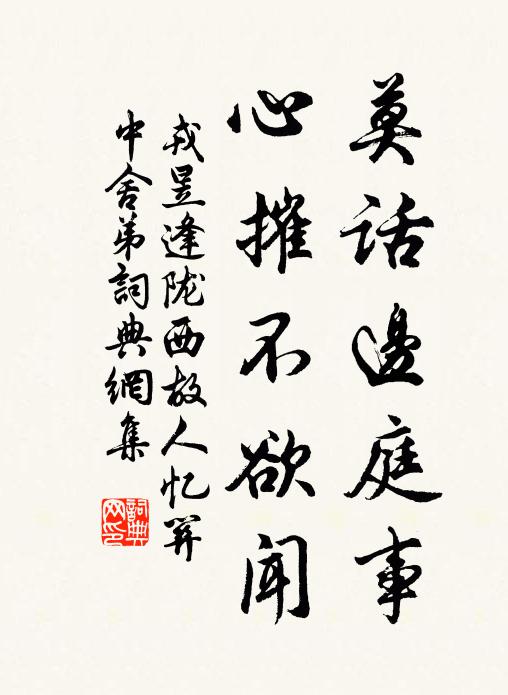 莫話邊庭事
心摧不欲聞
戎昱逢陇西故人忆關
中舍弟詞典網集
詞典
网印